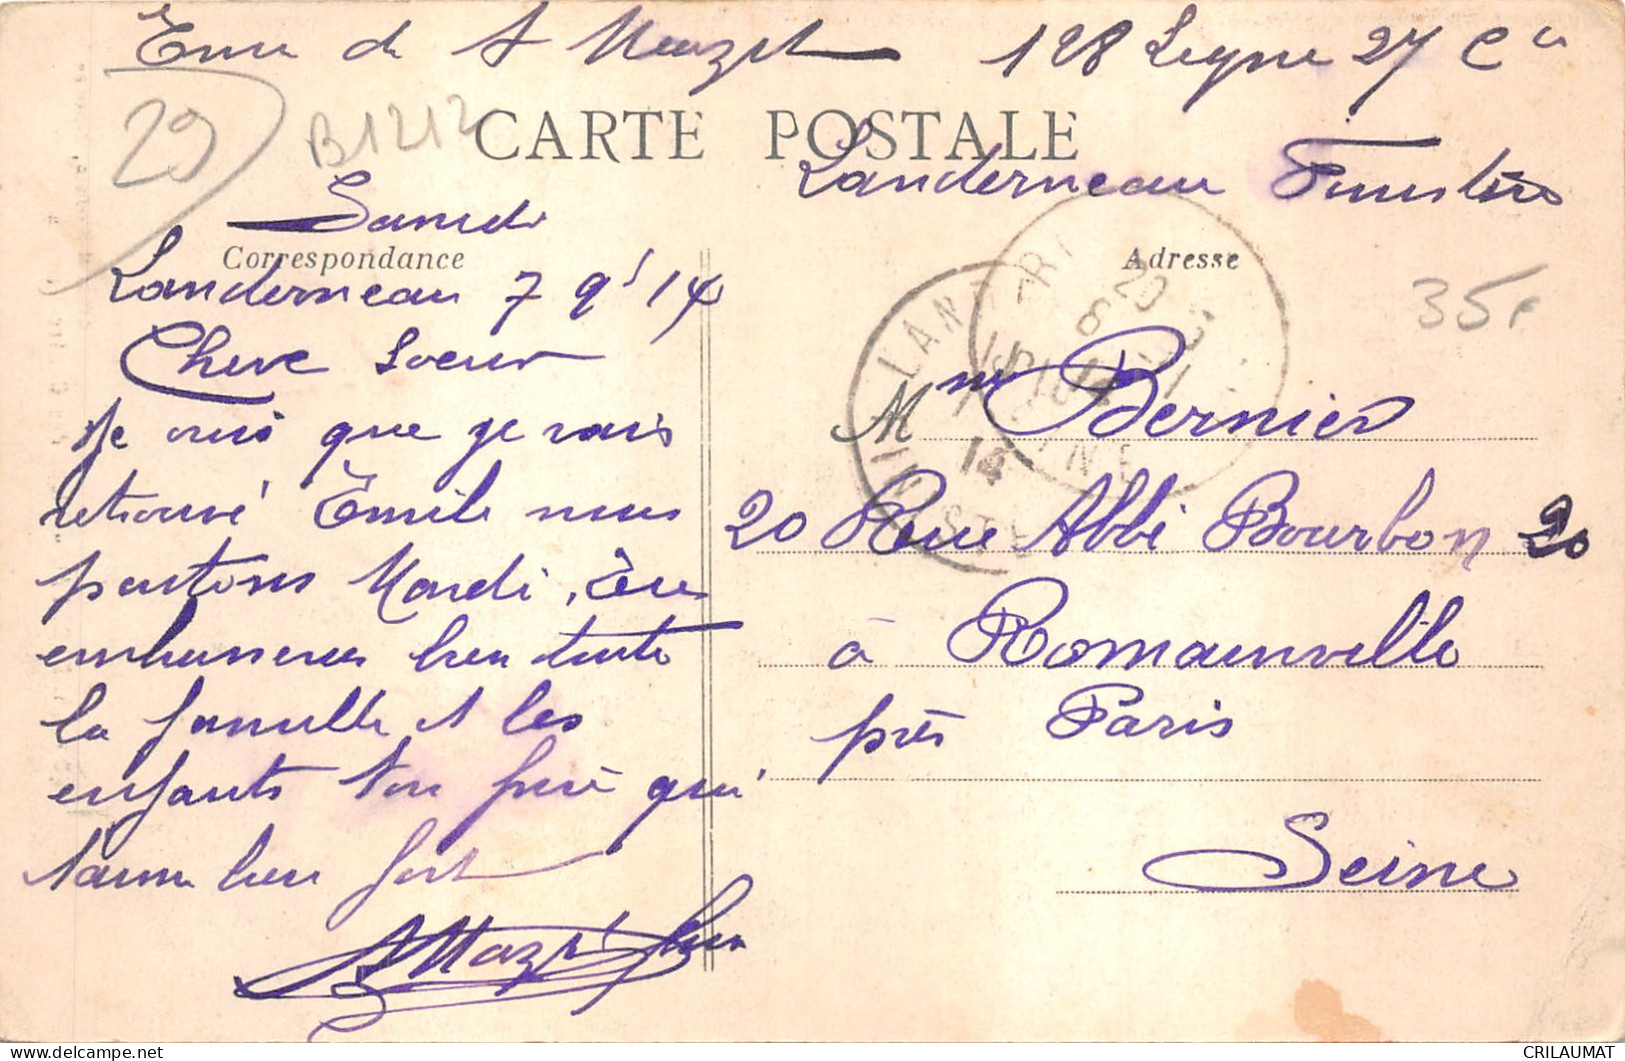 Env de A Mazet 128 Ligne 27 Cie
29
B1212
CARTE POSTALE
Landerneau Finistère
Samdi
Correspondance
Adresse
Landerneau 7 9' 14
35F
Chere Soeur
Mme Bernier
Je crois que je vais
retrouvé Emile nous
20 Rue Abbé Bourbon 20
partons Mardi
embrasseras bien toute
à Romainville
la famille et les
près Paris
enfants ton frère qui
t'aime bien fort
Seine
A Mazet
LAND
FINISTE
14
CRILAUMAT